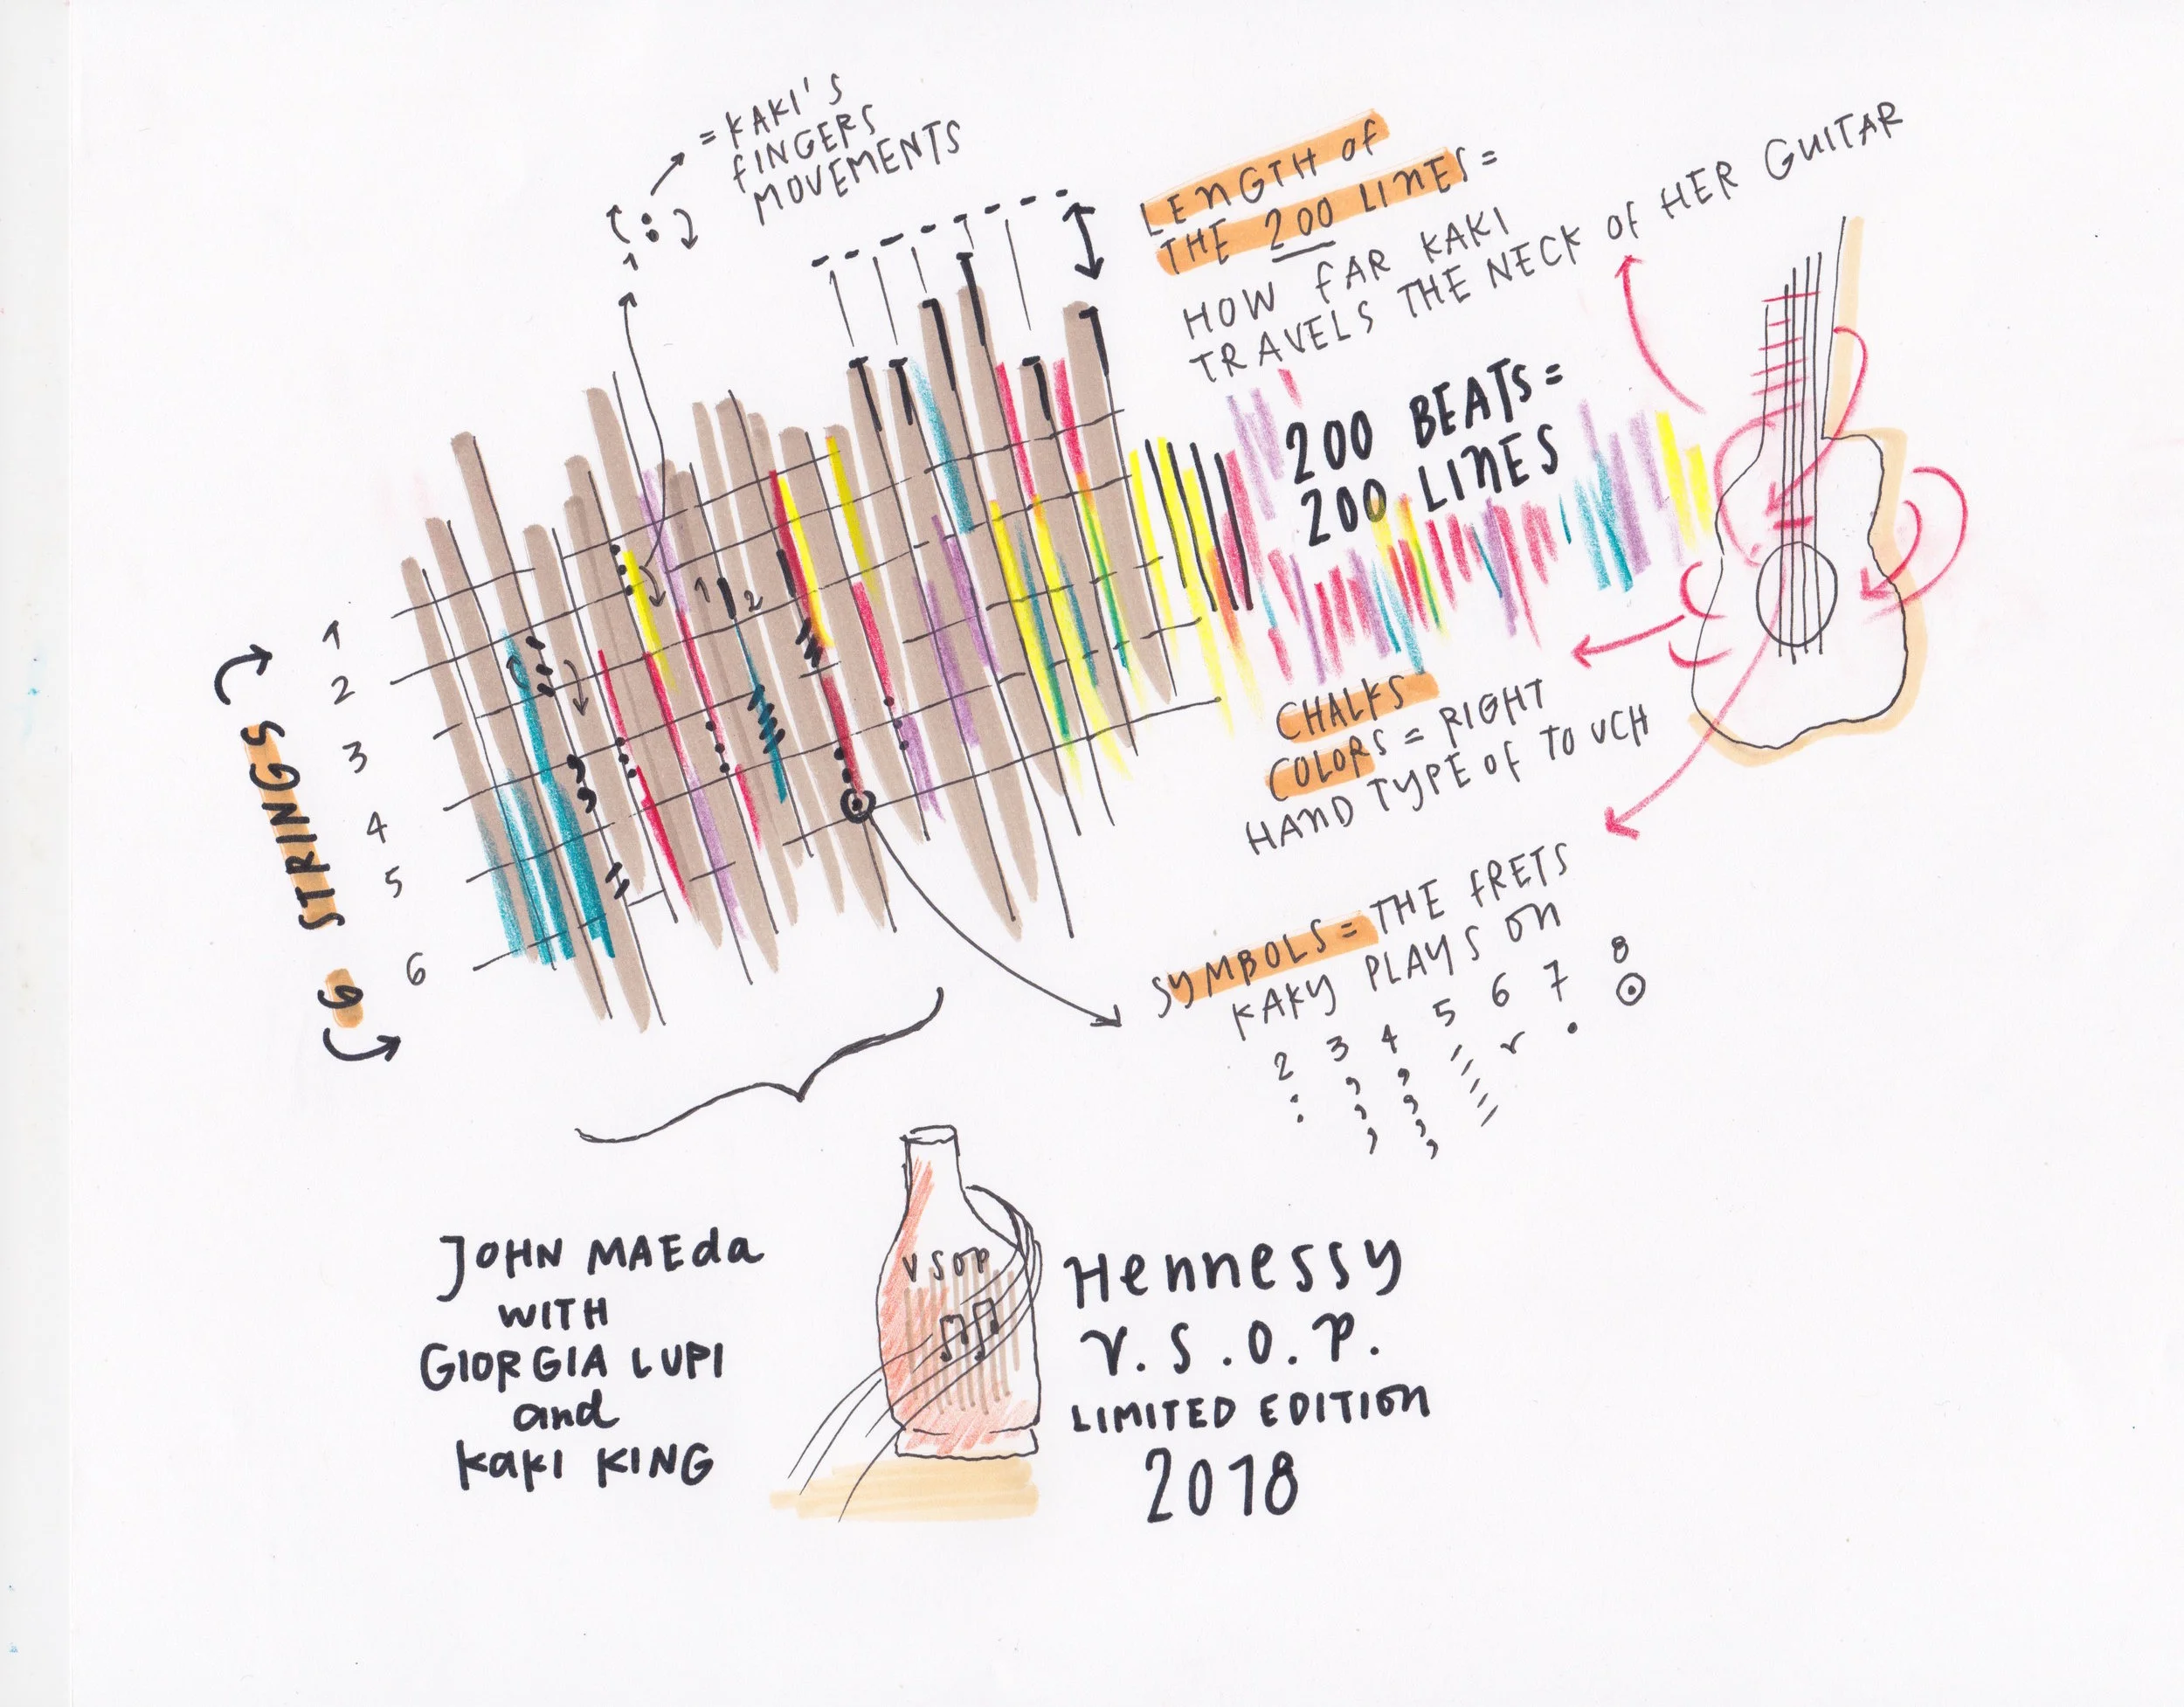 = KAKI'S
FINGERS
MOVEMENTS
LENGTH of
THE 200 LINES =
HOW FAR KAKI
TRAVELS THE NECK of HER GUITAR
200 BEATS =
200 LINES
1
2
3
4
5
6
6 STRINGS
1 2
CHALKS
COLORS = RIGHT
HAND TYPE OF TOUCH
SYMBOLS = THE FRETS
KAKY PLAYS ON
2 3 4 5 6 7 8
JOHN MAEda
WITH
GIORGIA LUPI
and
KaKI KING
VSOP
Hennessy
V.S.O.P.
LIMITED EDITION
2018